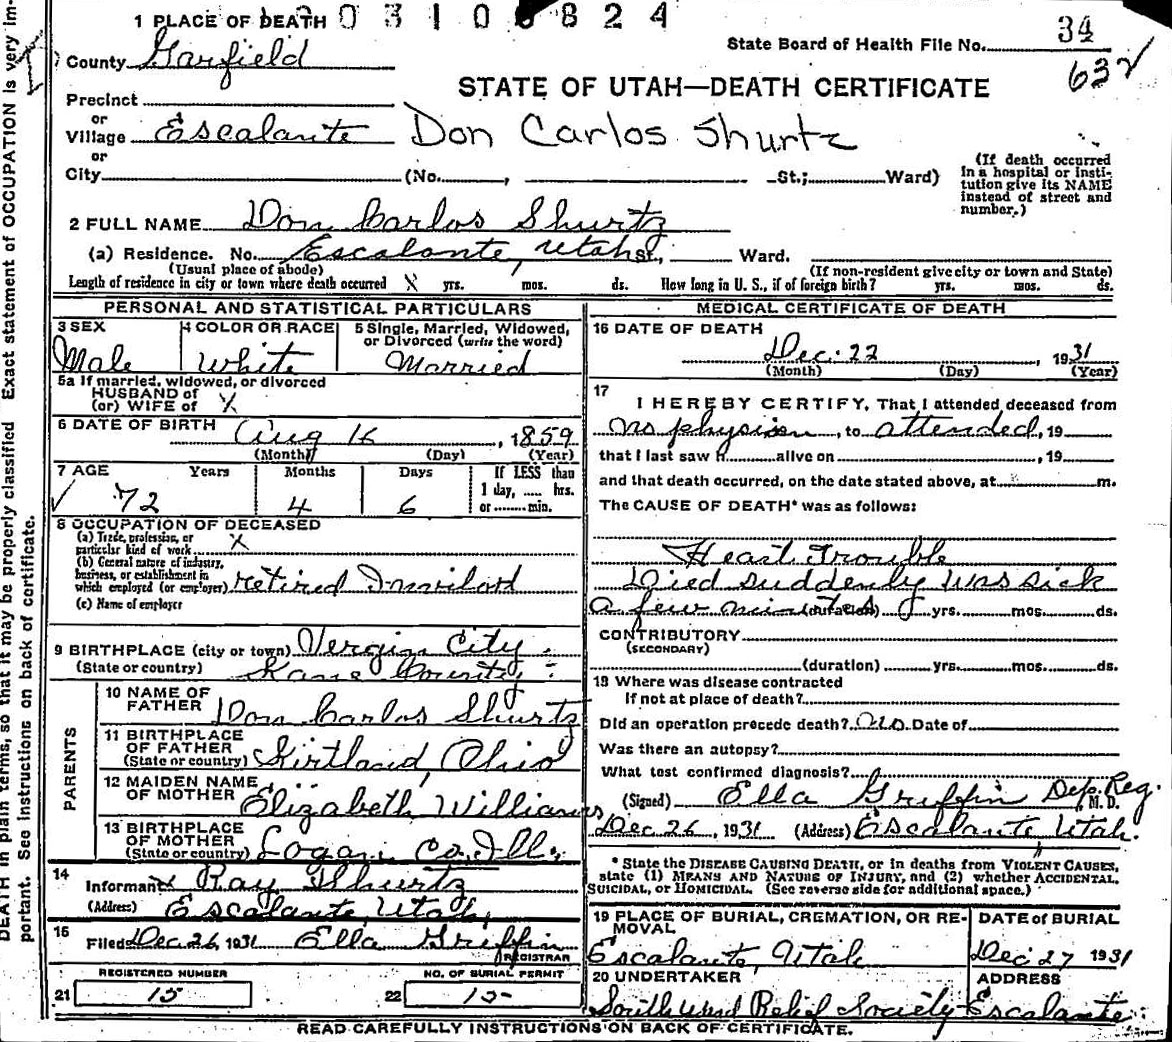 1 PLACE OF DEATH 0 3 1 0 0 8 2 4
State Board of Health File No. 34
632
County Garfield
STATE OF UTAH—DEATH CERTIFICATE
Precinct
or
Village Escalante Don Carlos Shurtz
or
City (No. , St.; Ward)
(If death occurred in a hospital or insti-
tution give its NAME
instead of street and
number.)
2 FULL NAME Don Carlos Shurtz
(a) Residence. No. Escalante, Utah St., Ward.
(Usual place of abode) (If non-resident give city or town and State)
Length of residence in city or town where death occurred X yrs. mos. ds. How long in U. S., if of foreign birth? yrs. mos. ds.
PERSONAL AND STATISTICAL PARTICULARS
3 SEX
Male
4 COLOR OR RACE
White
5 Single, Married, Widowed,
or Divorced (write the word)
Married
5a If married, widowed, or divorced
HUSBAND of
(or) WIFE of X
6 DATE OF BIRTH
Aug 16, 1859
(Month) (Day) (Year)
7 AGE Years Months Days If LESS than
1 day, ..... hrs.
or ........ min.
72 4 6
8 OCCUPATION OF DECEASED
(a) Trade, profession, or
particular kind of work X
(b) General nature of industry,
business, or establishment in
which employed (or employer) retired
(c) Name of employer
9 BIRTHPLACE (city or town) Vergin City
(State or country) Kane County
PARENTS
10 NAME OF
FATHER Don Carlos Shurtz
11 BIRTHPLACE
OF FATHER
(State or country) Kirtland, Ohio
12 MAIDEN NAME
OF MOTHER Elizabeth Williams
13 BIRTHPLACE
OF MOTHER
(State or country) Logan Co. Ill.
14
Informant x Ray Shurtz
(Address) Escalante, Utah,
15
Filed Dec 26, 1931 Ella Griffin
REGISTRAR
REGISTERED NUMBER NO. OF BURIAL PERMIT
21 15 22 15
MEDICAL CERTIFICATE OF DEATH
16 DATE OF DEATH
Dec. 22, 1931
(Month) (Day) (Year)
17
I HEREBY CERTIFY, That I attended deceased from
no physician, to attended, 19
that I last saw h alive on , 19
and that death occurred, on the date stated above, at m.
The CAUSE OF DEATH* was as follows:
Heart Trouble
Died suddenly was sick
a few minutes (duration) yrs. mos. ds.
CONTRIBUTORY
(SECONDARY)
(duration) yrs. mos. ds.
18 Where was disease contracted
If not at place of death?
Did an operation precede death? no Date of
Was there an autopsy?
What test confirmed diagnosis?
(Signed) Ella Griffin Dep. Reg. M. D.
Dec 26, 1931 (Address) Escalante, Utah.
* State the DISEASE CAUSING DEATH, or in deaths from VIOLENT CAUSES,
state (1) MEANS AND NATURE OF INJURY, and (2) whether ACCIDENTAL,
SUICIDAL, or HOMICIDAL. (See reverse side for additional space.)
19 PLACE OF BURIAL, CREMATION, OR RE-
MOVAL
Escalante, Utah
DATE of BURIAL
Dec 27 1931
20 UNDERTAKER
South Ward Relief Society
ADDRESS
Escalante
READ CAREFULLY INSTRUCTIONS ON BACK OF CERTIFICATE.
DEATH in plain terms, so that it may be properly classified Exact statement of OCCUPATION is very im-
portant. See instructions on back of certificate.